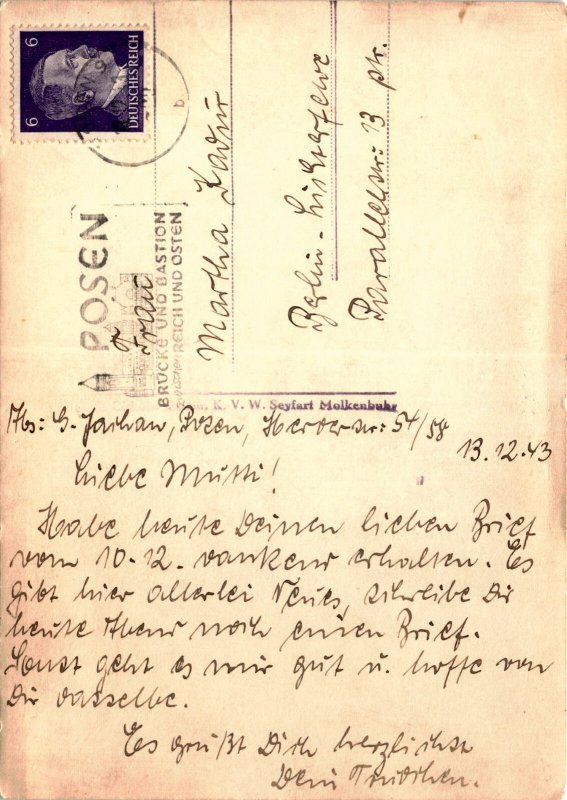 6 6
DEUTSCHES REICH
b
POSEN
BRÜCKE UND BASTION
zwischen REICH UND OSTEN
Frau
Martha
Berlin-Lichterfelde
Parallelstr: 13 ptr.
K. V. W. Seyfart Molkenbuhr
Abs: G. Posen, Herderstr: 54/58
13.12.43
Liebe Mutti!
Habe heute Deinen lieben Brief
vom 10.12. dankend erhalten. Es
gibt hier allerlei Neues, schreibe Dir
heute Abend noch einen Brief.
Sonst geht es mir gut u. hoffe von
Dir dasselbe.
Es grüßt Dich herzlichst
Dein Trudchen.